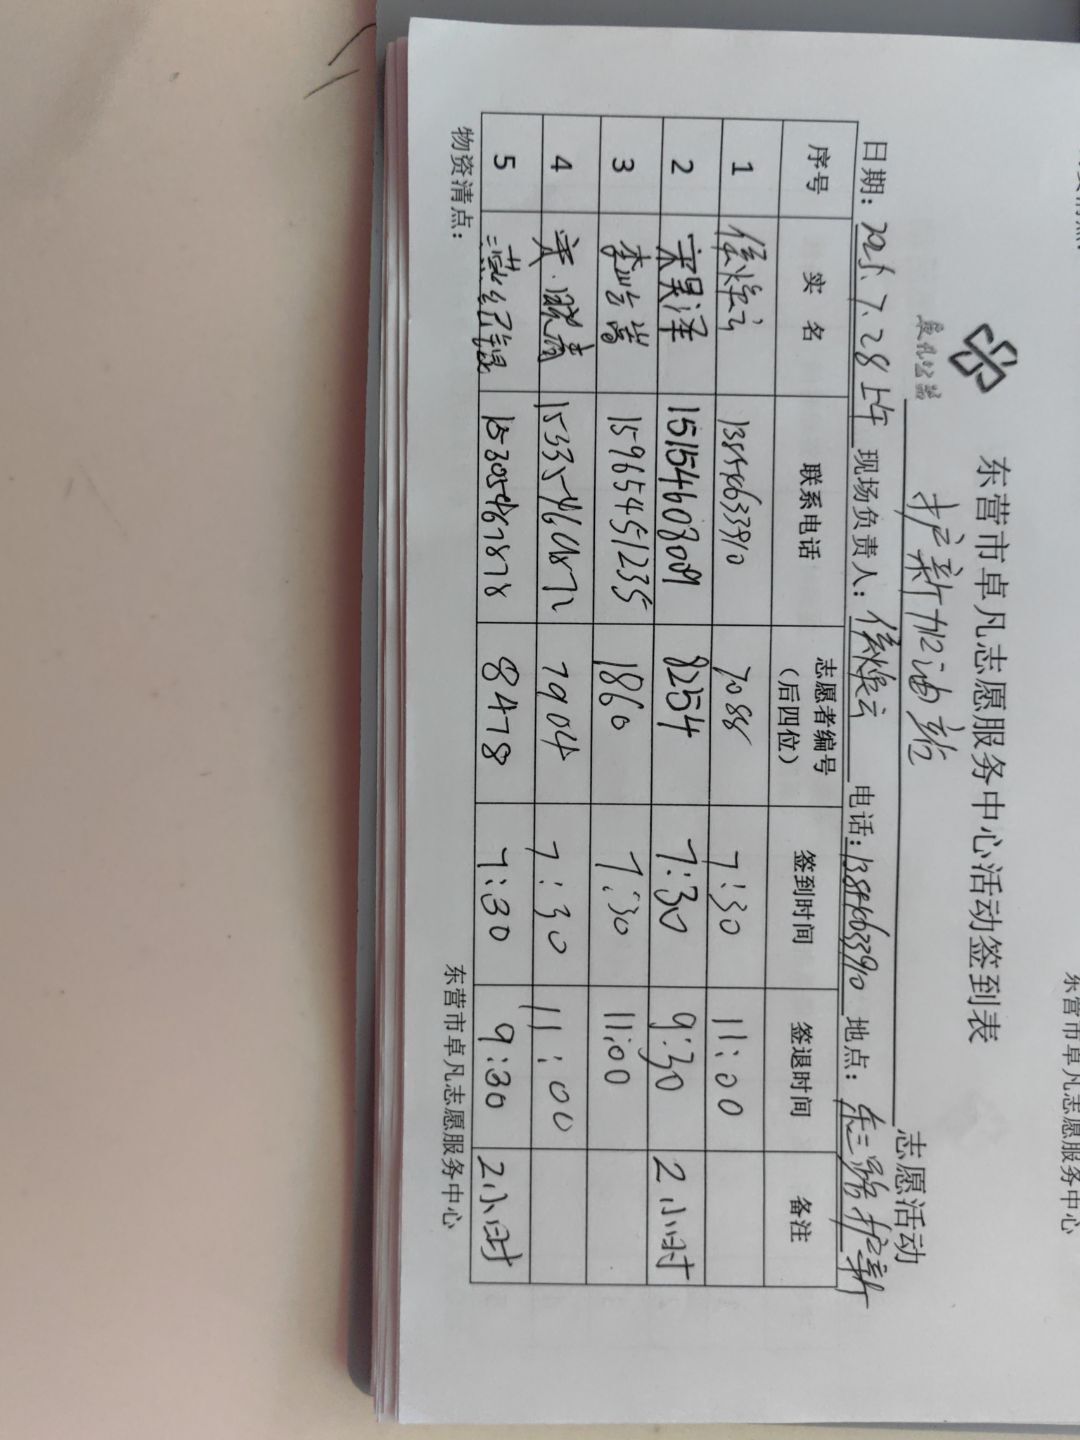 东营市卓凡志愿服务中心活动签到表
护薪加油站 志愿活动
日期：2025.7.28上午 现场负责人： 电话：13854633910 地点：东三路护薪
序号 实 名 联系电话 志愿者编号（后四位） 签到时间 签退时间 备注
1 13854633910 7088 7:30 11:00
2 宋昊泽 15154608009 8254 7:30 9:30 2小时
3 李 15965451235 1860 7:30 11:00
4 晓青 15335460872 7904 7:30 11:00
5 15305467878 8478 7:30 9:30 2小时
物资清点： 东营市卓凡志愿服务中心
东营市卓凡志愿服务中心